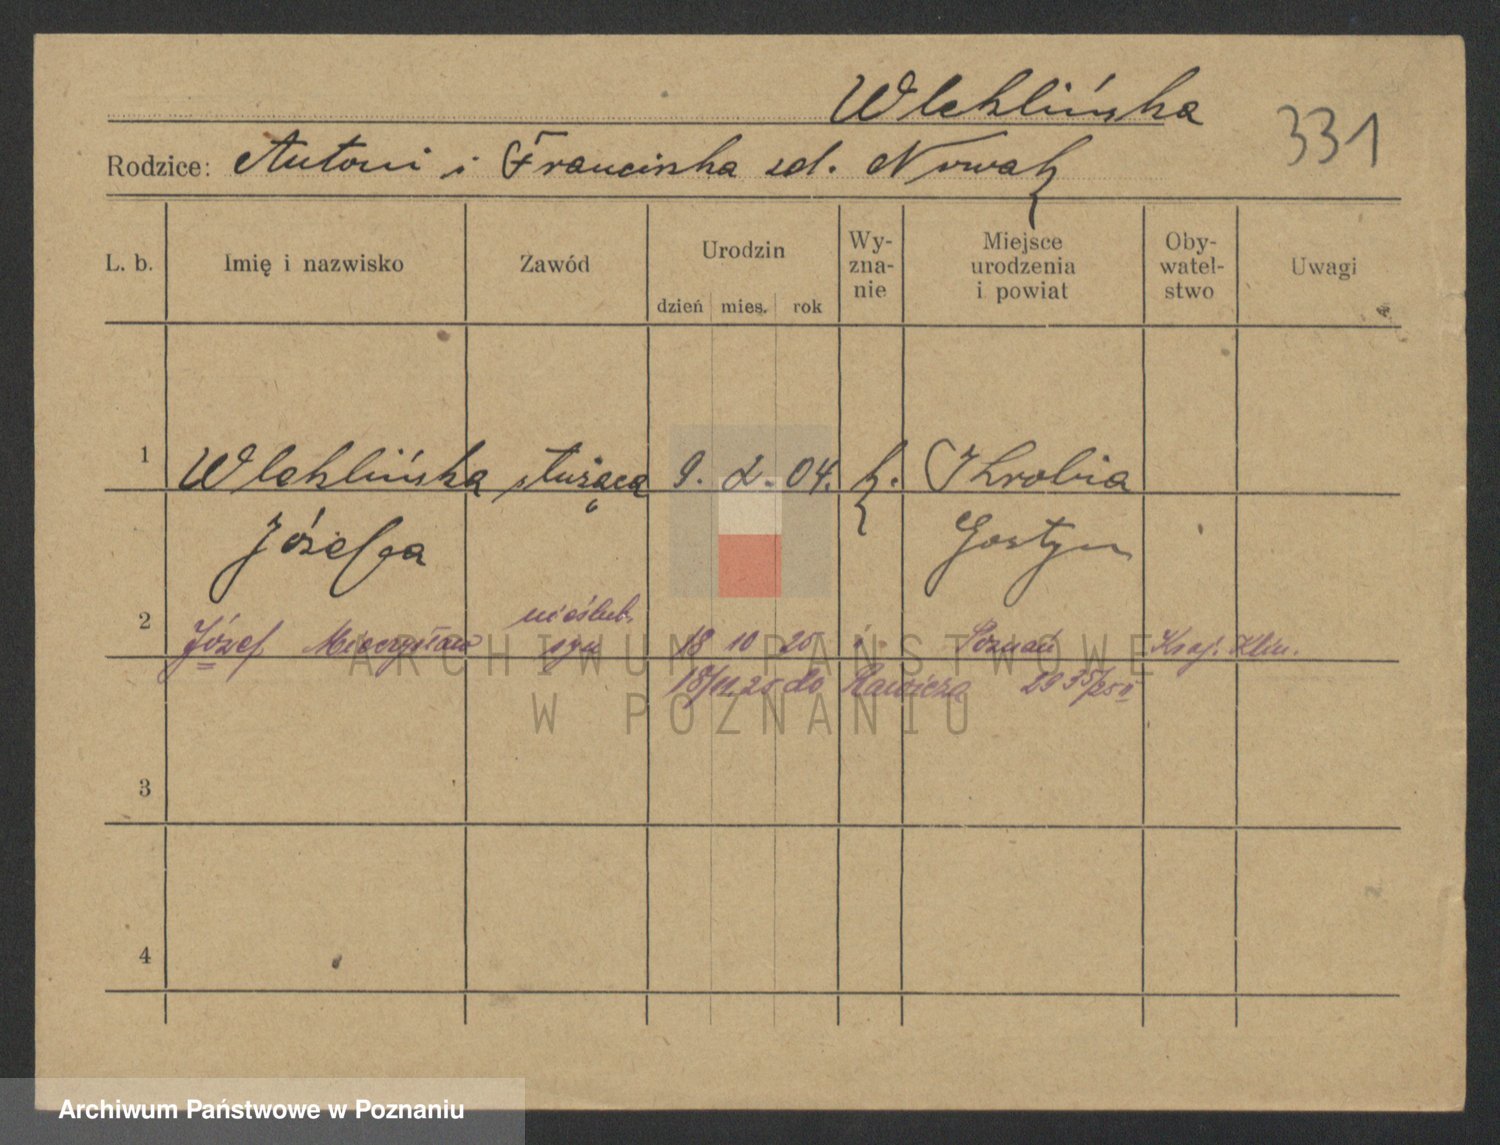 Wleklińska
331
Rodzice: Antoni i Franciszka zd. Nowak
L. b.
Imię i nazwisko
Zawód
Urodzin
dzień mies. rok
Wy-
zna-
nie
Miejsce
urodzenia
i powiat
Oby-
watel-
stwo
Uwagi
1 Wleklińska służąca 9. 2. 04. k. Krobia
Józefa Gostyń
nieślub.
2 Józef Mieczysław syn 18 10 25 Poznań Klin.
18/11 25 do Rawicza
3
4
ARCHIWUM PAŃSTWOWE
W POZNANIU
Archiwum Państwowe w Poznaniu